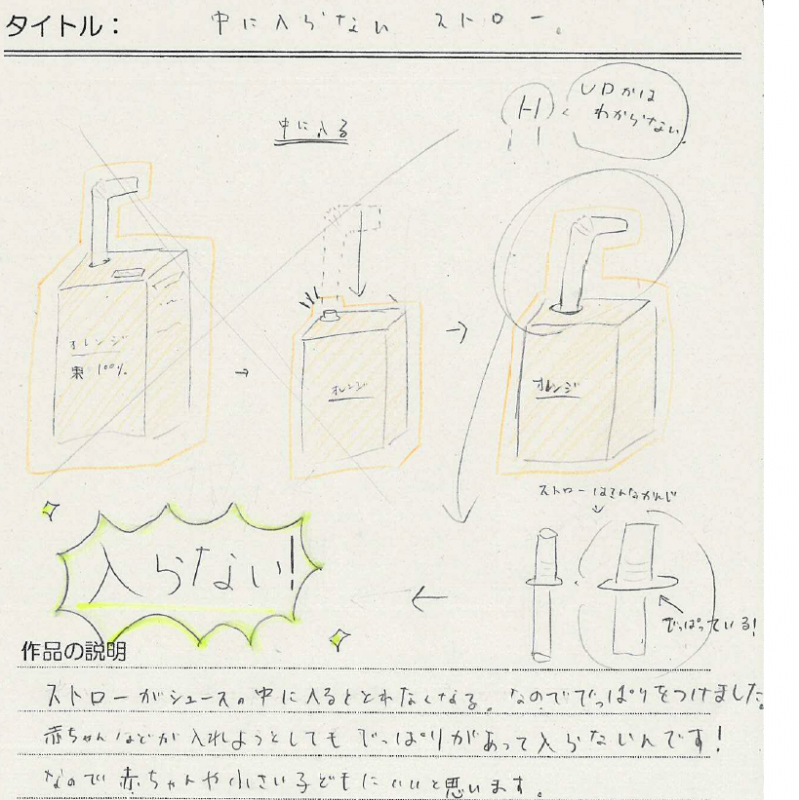 タイトル：　中に入らない ストロー。
中に入る
UDかは
わからない
オレンジ
100%
オレンジ
オレンジ
ストローはこんなかんじ
入らない!
でっぱっている!
作品の説明
ストローがジュースの中に入るととれなくなる。なのででっぱりをつけました
赤ちゃんなどが入れようとしてもでっぱりがあって入らないんです!
なので赤ちゃんや小さい子どもにいいと思います。